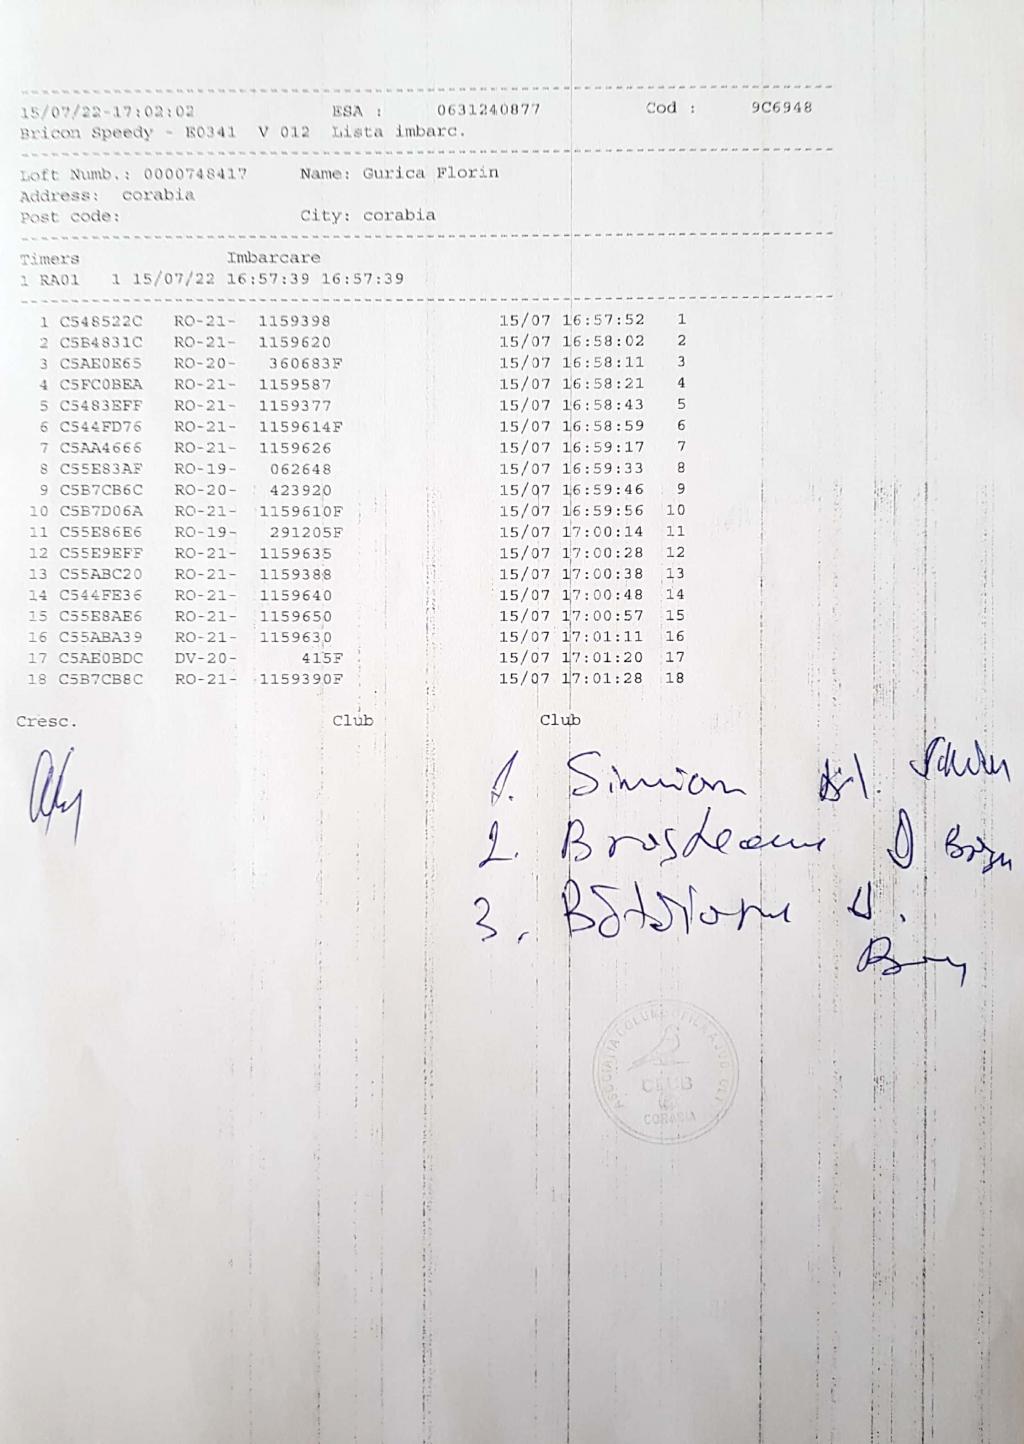 15/07/22-17:02:02 ESA : 0631240877 Cod : 9C6948
Bricon Speedy - E0341 V 012 Lista imbarc.
Loft Numb.: 0000748417 Name: Gurica Florin
Address: corabia
Post code: City: corabia
Timers Imbarcare
1 RA01 1 15/07/22 16:57:39 16:57:39
1 C548522C RO-21- 1159398 15/07 16:57:52 1
2 C5B4831C RO-21- 1159620 15/07 16:58:02 2
3 C5AE0E65 RO-20- 360683F 15/07 16:58:11 3
4 C5FC0BEA RO-21- 1159587 15/07 16:58:21 4
5 C5483EFF RO-21- 1159377 15/07 16:58:43 5
6 C544FD76 RO-21- 1159614F 15/07 16:58:59 6
7 C5AA4666 RO-21- 1159626 15/07 16:59:17 7
8 C55E83AF RO-19- 062648 15/07 16:59:33 8
9 C5B7CB6C RO-20- 423920 15/07 16:59:46 9
10 C5B7D06A RO-21- 1159610F 15/07 16:59:56 10
11 C55E86E6 RO-19- 291205F 15/07 17:00:14 11
12 C55E9EFF RO-21- 1159635 15/07 17:00:28 12
13 C55ABC20 RO-21- 1159388 15/07 17:00:38 13
14 C544FE36 RO-21- 1159640 15/07 17:00:48 14
15 C55E8AE6 RO-21- 1159650 15/07 17:00:57 15
16 C55ABA39 RO-21- 1159630 15/07 17:01:11 16
17 C5AE0BDC DV-20- 415F 15/07 17:01:20 17
18 C5B7CB8C RO-21- 1159390F 15/07 17:01:28 18
Cresc. Club Club
1. Simion
2. Brosteanu
3.
CLUB
CORABIA